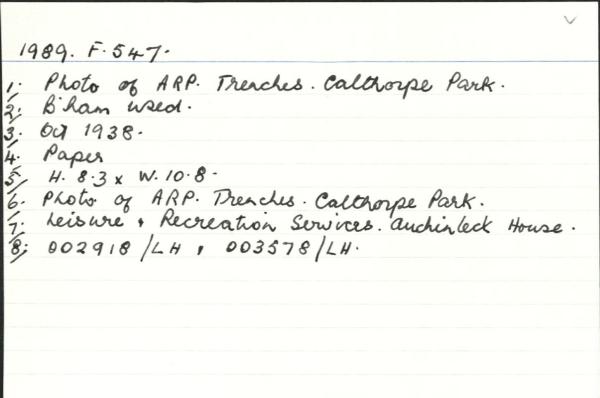 1989. F. 547.
1. Photo of ARP. Trenches. Calthorpe Park.
2. B'ham used.
3. Oct 1938.
4. Paper
5. H. 8.3 x W. 10.8.
6. Photo of ARP. Trenches. Calthorpe Park.
7. Leisure & Recreation Services. Auchinleck House.
8. 002918 /LH , 003578/LH.